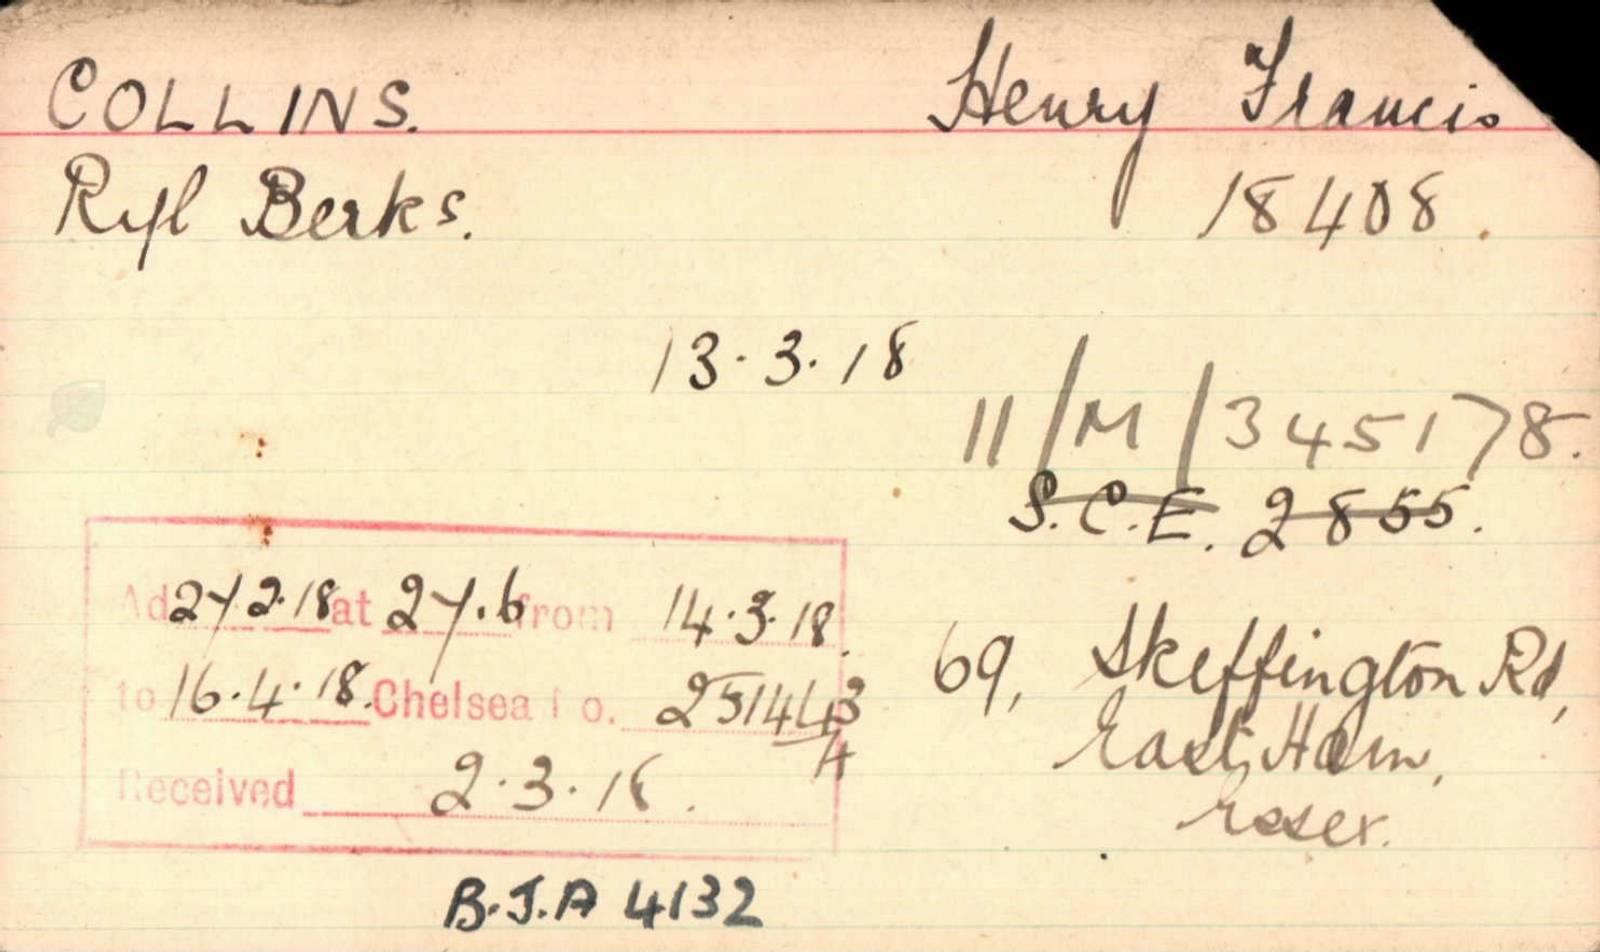 COLLINS. Henry Francis
Ryl Berks. 18408.
13.3.18
11/M/345178.
S.C.E. 2855.
Ad 27.2.18 at 27.6 from 14.3.18
to 16.4.18. Chelsea No. 251443
A
Received 2.3.18.
69, Skeffington Rd,
East Ham,
Essex.
B.J.A 4132